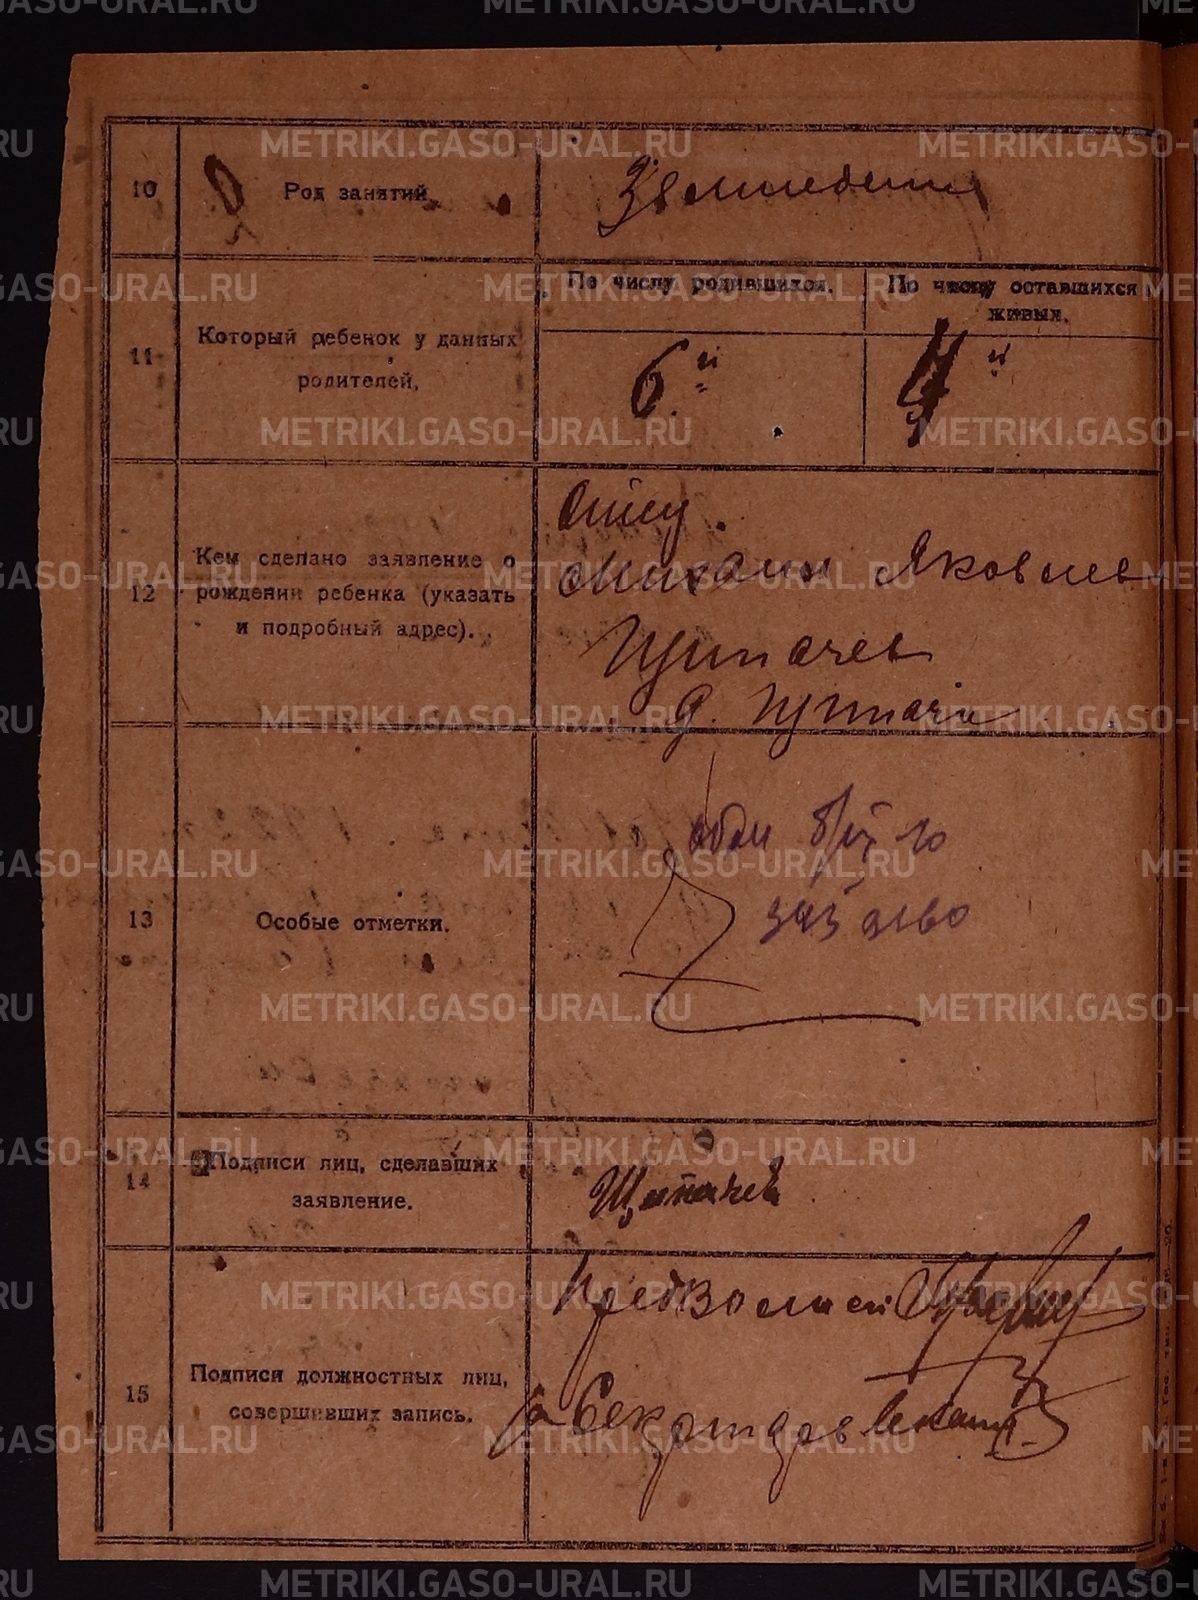 10
Род занятий.
Земледелия
11
Который ребенок у данных
родителей.
По числу родившихся.
По числу оставшихся
живых.
6й
4й
12
Кем сделано заявление о
рождении ребенка (указать
и подробный адрес).
Отец
Михаил Яковлев
Щипачев
д. Щипачи
13
Особые отметки.
14
Подписи лиц, сделавших
заявление.
Щипачев
15
Подписи должностных лиц,
совершивших запись.
Предволиси
Секретарь
METRIKI.GASO-URAL.RU